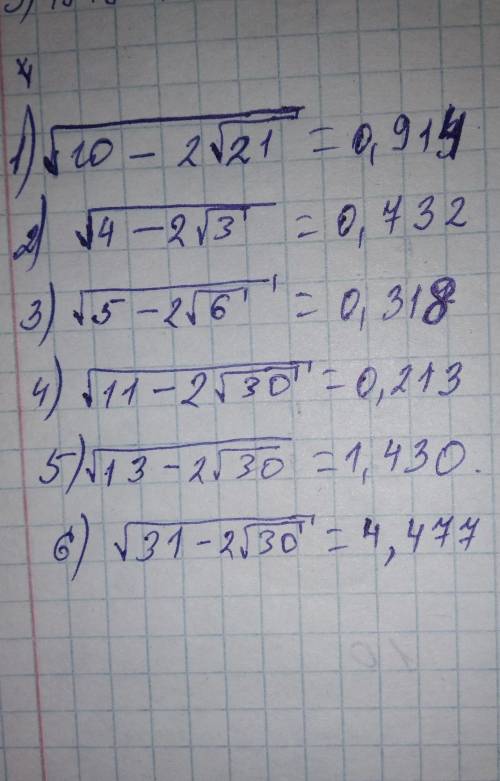 4
1) √(10 - 2√21) = 0,914
2) √(4 - 2√3) = 0,732
3) √(5 - 2√6) = 0,318
4) √(11 - 2√30) = 0,213
5) √(13 - 2√30) = 1,430.
6) √(31 - 2√30) = 4,477